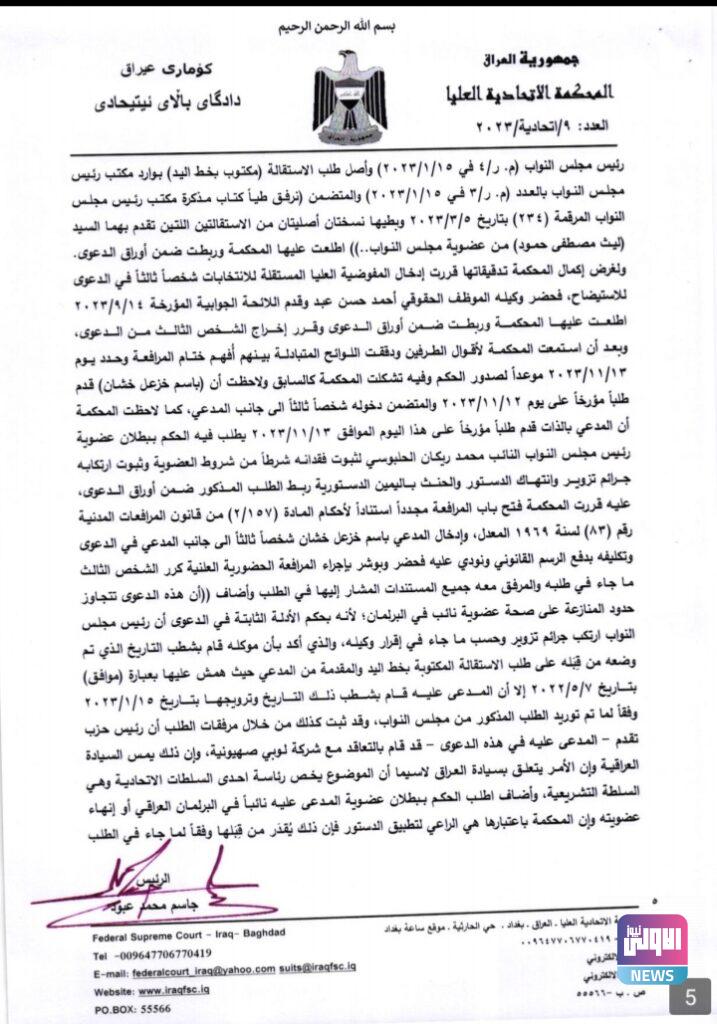 بسم الله الرحمن الرحيم
جمهورية العراق
المحكمة الاتحادية العليا
العدد: ٩/اتحادية/٢٠٢٣
كۆماری عیراق
دادگای باڵای ئیتیحادی
رئيس مجلس النواب (م. ر/٤ في ٢٠٢٣/١/١٥) وأصل طلب الاستقالة (مكتوب بخط اليد) بوارد مكتب رئيس
مجلس النواب بالعدد (م. ر/٣ في ٢٠٢٣/١/١٥) والمتضمن (نرفق طياً كتاب مذكرة مكتب رئيس مجلس
النواب المرقمة (٢٣٤) بتاريخ ٢٠٢٣/٣/٥ وبطيها نسختان أصليتان من الاستقالتين اللتين تقدم بهما السيد
(ليث مصطفى حمود) من عضوية مجلس النواب..)) اطلعت عليها المحكمة وربطت ضمن أوراق الدعوى.
ولغرض إكمال المحكمة تدقيقاتها قررت إدخال المفوضية العليا المستقلة للانتخابات شخصاً ثالثاً في الدعوى
للاستيضاح، فحضر وكيله الموظف الحقوقي أحمد حسن عبد وقدم اللائحة الجوابية المؤرخة ٢٠٢٣/٩/١٤
اطلعت عليها المحكمة وربطت ضمن أوراق الدعوى وقرر إخراج الشخص الثالث من الدعوى،
وبعد أن استمعت المحكمة لأقوال الطرفين ودققت اللوائح المتبادلة بينهم أُفهم ختام المرافعة وحدد يوم
٢٠٢٣/١١/١٣ موعداً لصدور الحكم وفيه تشكلت المحكمة كالسابق ولاحظت أن (باسم خزعل خشان) قدم
طلباً مؤرخاً على يوم ٢٠٢٣/١١/١٢ والمتضمن دخوله شخصاً ثالثاً الى جانب المدعي، كما لاحظت المحكمة
أن المدعي بالذات قدم طلباً مؤرخاً على هذا اليوم الموافق ٢٠٢٣/١١/١٣ يطلب فيه الحكم ببطلان عضوية
رئيس مجلس النواب النائب محمد ريكان الحلبوسي لثبوت فقدانه شرطاً من شروط العضوية وثبوت ارتكابه
جرائم تزوير وانتهاك الدستور والحنث باليمين الدستورية ربط الطلب المذكور ضمن أوراق الدعوى،
عليه قررت المحكمة فتح باب المرافعة مجدداً استناداً لأحكام المادة (٢/١٥٧) من قانون المرافعات المدنية
رقم (٨٣) لسنة ١٩٦٩ المعدل، وإدخال المدعي باسم خزعل خشان شخصاً ثالثاً الى جانب المدعي في الدعوى
وتكليفه بدفع الرسم القانوني ونودي عليه فحضر وبوشر بإجراء المرافعة الحضورية العلنية كرر الشخص الثالث
ما جاء في طلبه والمرفق معه جميع المستندات المشار إليها في الطلب وأضاف ((أن هذه الدعوى تتجاوز
حدود المنازعة على صحة عضوية نائب في البرلمان؛ لأنه بحكم الأدلة الثابتة في الدعوى أن رئيس مجلس
النواب ارتكب جرائم تزوير وحسب ما جاء في إقرار وكيله، والذي أكد بأن موكله قام بشطب التاريخ الذي تم
وضعه من قِبَله على طلب الاستقالة المكتوبة بخط اليد والمقدمة من المدعي حيث همش عليها بعبارة (موافق)
بتاريخ ٢٠٢٢/٥/٧ إلا أن المدعى عليه قام بشطب ذلك التاريخ وترويجها بتاريخ ٢٠٢٣/١/١٥
وفقاً لما تم توريد الطلب المذكور من مجلس النواب، وقد ثبت كذلك من خلال مرفقات الطلب أن رئيس حزب
تقدم – المدعى عليه في هذه الدعوى – قد قام بالتعاقد مع شركة لوبي صهيونية، وإن ذلك يمس السيادة
العراقية وإن الأمر يتعلق بسيادة العراق لاسيما أن الموضوع يخص رئاسة احدى السلطات الاتحادية وهي
السلطة التشريعية، وأضاف اطلب الحكم ببطلان عضوية المدعى عليه نائباً في البرلمان العراقي أو إنهاء
عضويته وإن المحكمة باعتبارها هي الراعي لتطبيق الدستور فإن ذلك يُقدَر من قِبَلها وفقاً لما جاء في الطلب
الرئيس
جاسم محمد عبود
٥
Federal Supreme Court – Iraq– Baghdad
Tel -009647706770419
E-mail: federalcourt_iraq@yahoo.com suits@iraqfsc.iq
Website: www.iraqfsc.iq
PO.BOX: 55566
ة الاتحادية العليا . العراق . بغداد . حي الحارثية . موقع ساعة بغداد
٠٠٩٦٤٧٧٠٦٧٧٠٤١٩
لكتروني
لكتروني
ص . ب -٥٥٥٦٦
الاولى نيوز
NEWS
5